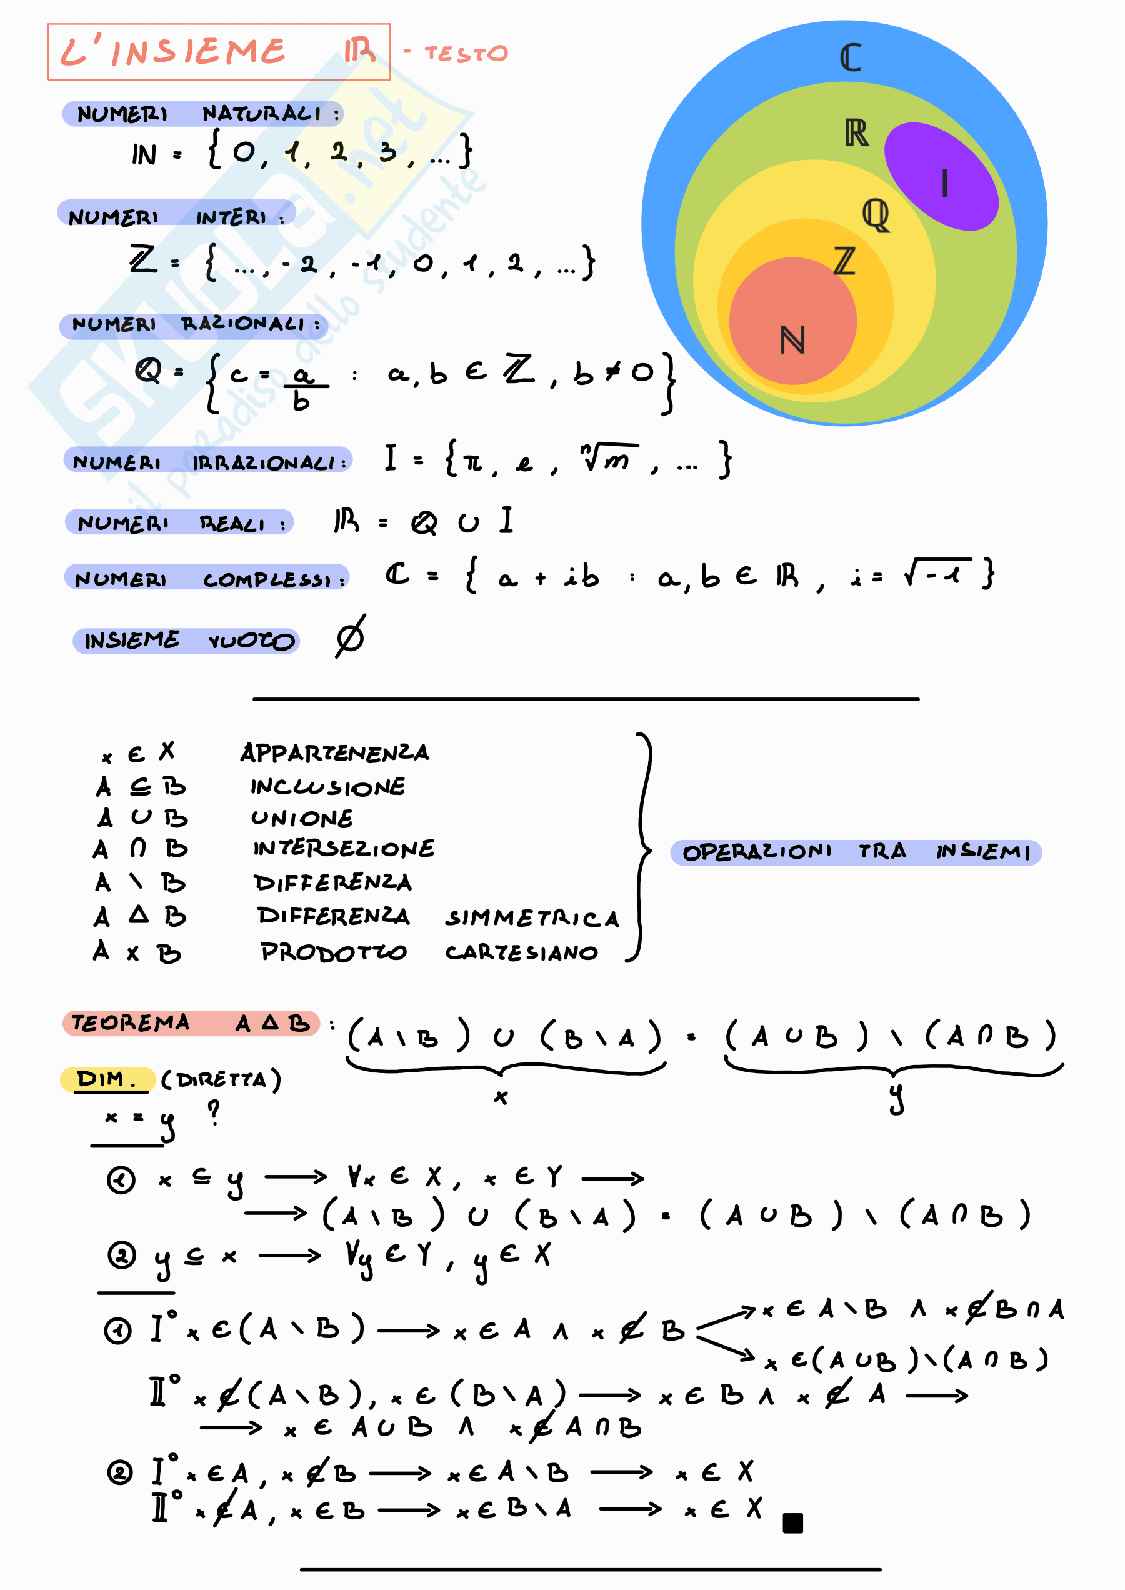 L'INSIEME ℝ - TESTO
ℂ
ℝ
I
ℚ
ℤ
ℕ
NUMERI NATURALI:
ℕ = { 0, 1, 2, 3, ... }
NUMERI INTERI:
ℤ = { ..., -2, -1, 0, 1, 2, ... }
NUMERI RAZIONALI:
ℚ = { c = a/b : a, b ∈ ℤ, b ≠ 0 }
NUMERI IRRAZIONALI: I = { π, e, ⁿ√m, ... }
NUMERI REALI: ℝ = ℚ ∪ I
NUMERI COMPLESSI: ℂ = { a + ib : a, b ∈ ℝ, i = √-1 }
INSIEME VUOTO ∅
x ∈ X APPARTENENZA
A ⊆ B INCLUSIONE
A ∪ B UNIONE
A ∩ B INTERSEZIONE
A \ B DIFFERENZA
A Δ B DIFFERENZA SIMMETRICA
A x B PRODOTTO CARTESIANO
OPERAZIONI TRA INSIEMI
TEOREMA A Δ B : (A \ B) ∪ (B \ A) = (A ∪ B) \ (A ∩ B)
x y
DIM. (DIRETTA)
x = y ?
① x ⊆ y → ∀x ∈ X, x ∈ Y →
→ (A \ B) ∪ (B \ A) = (A ∪ B) \ (A ∩ B)
② y ⊆ x → ∀y ∈ Y, y ∈ X
① I° x ∈ (A \ B) → x ∈ A ∧ x ∉ B → x ∈ A \ B ∧ x ∉ B ∩ A
→ x ∈ (A ∪ B) \ (A ∩ B)
II° x ∉ (A \ B), x ∈ (B \ A) → x ∈ B ∧ x ∉ A →
→ x ∈ A ∪ B ∧ x ∉ A ∩ B
② I° x ∈ A, x ∉ B → x ∈ A \ B → x ∈ X
II° x ∉ A, x ∈ B → x ∈ B \ A → x ∈ X ■
SKUOLA.net
il paradiso dello studente